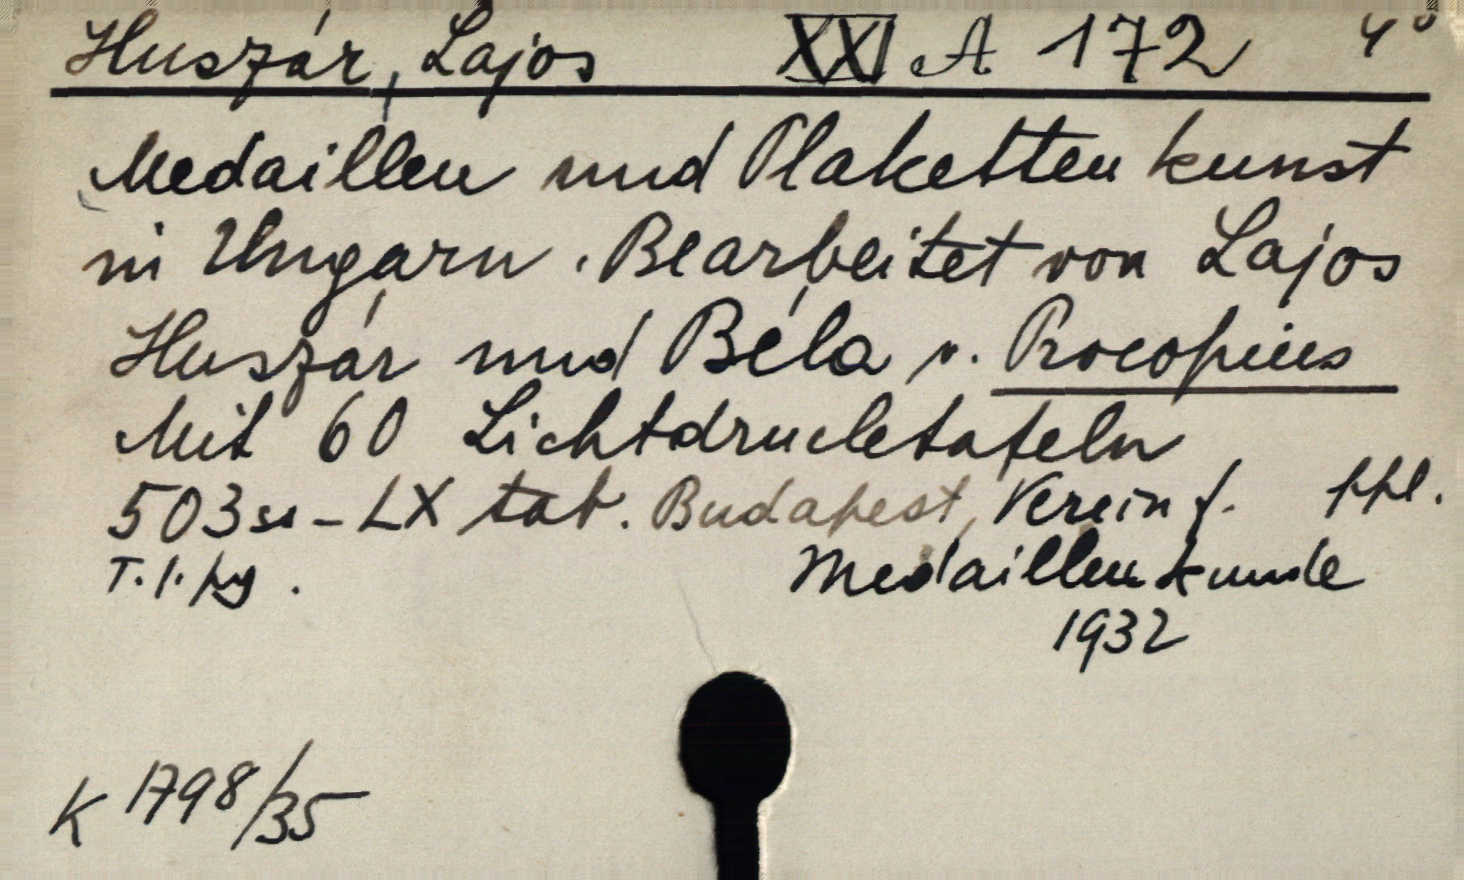 Huszár, Lajos XXI A 172 4°
Medaillen und Plakettenkunst
in Ungarn. Bearbeitet von Lajos
Huszár und Béla v. Procopius
Mit 60 Lichtdrucktafeln
503 - LX tab. Budapest, Verein f. ppl.
Medaillenkunde
1932
K 1798/35